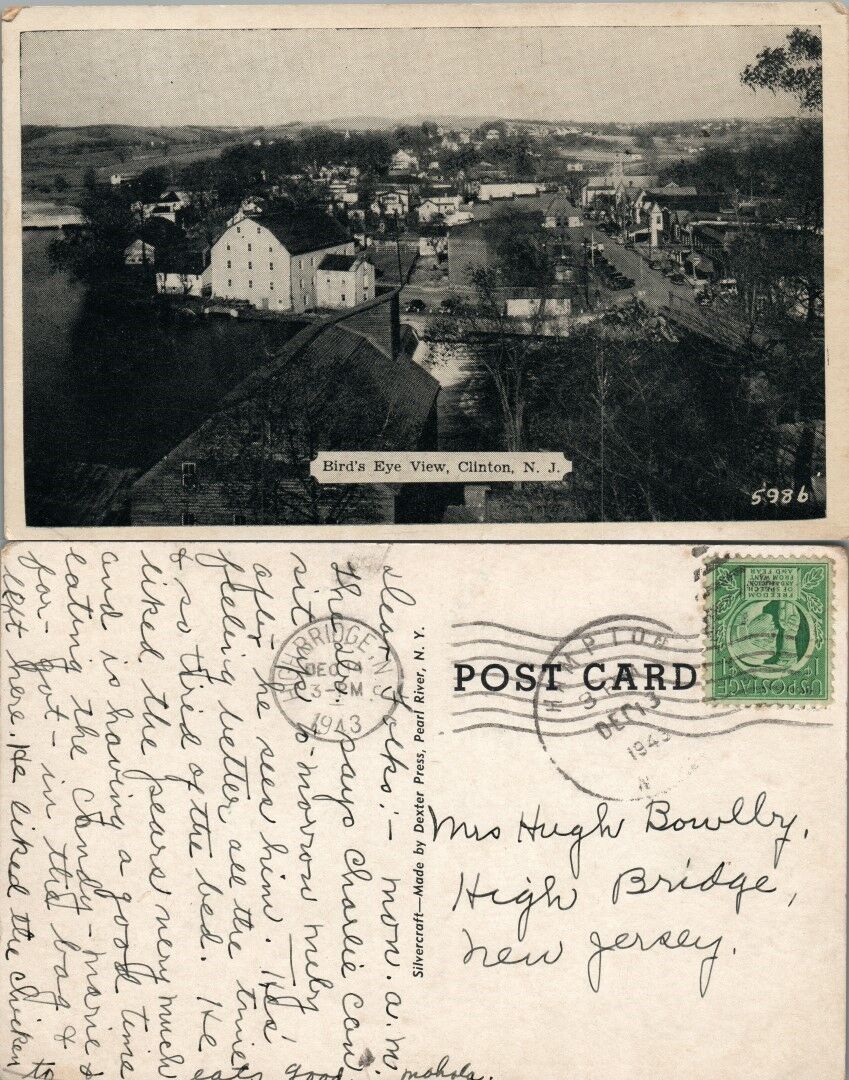 Bird's Eye View, Clinton, N. J.
5986
Dear Folks:- Mon. a.m.
The Dr. says Charlie can
sit up to-morrow
after he sees him. He's
feeling better all the time
& so tired of the bed. He eats good.
liked the pears very much
and is having a good time
eating the candy - Marie &
for-got- in the bag & to
left here. He liked the chicken
HIGH BRIDGE, N.J.
DEC
3-PM
1943
Silvercraft—Made by Dexter Press, Pearl River, N. Y.
POST CARD
HAMPTON
DEC 13
1943
N
FREEDOM
OF SPEECH
AND RELIGION,
FROM WANT
AND FEAR
1¢
U.S. POSTAGE
Mrs Hugh Bowlby,
High Bridge,
New Jersey.